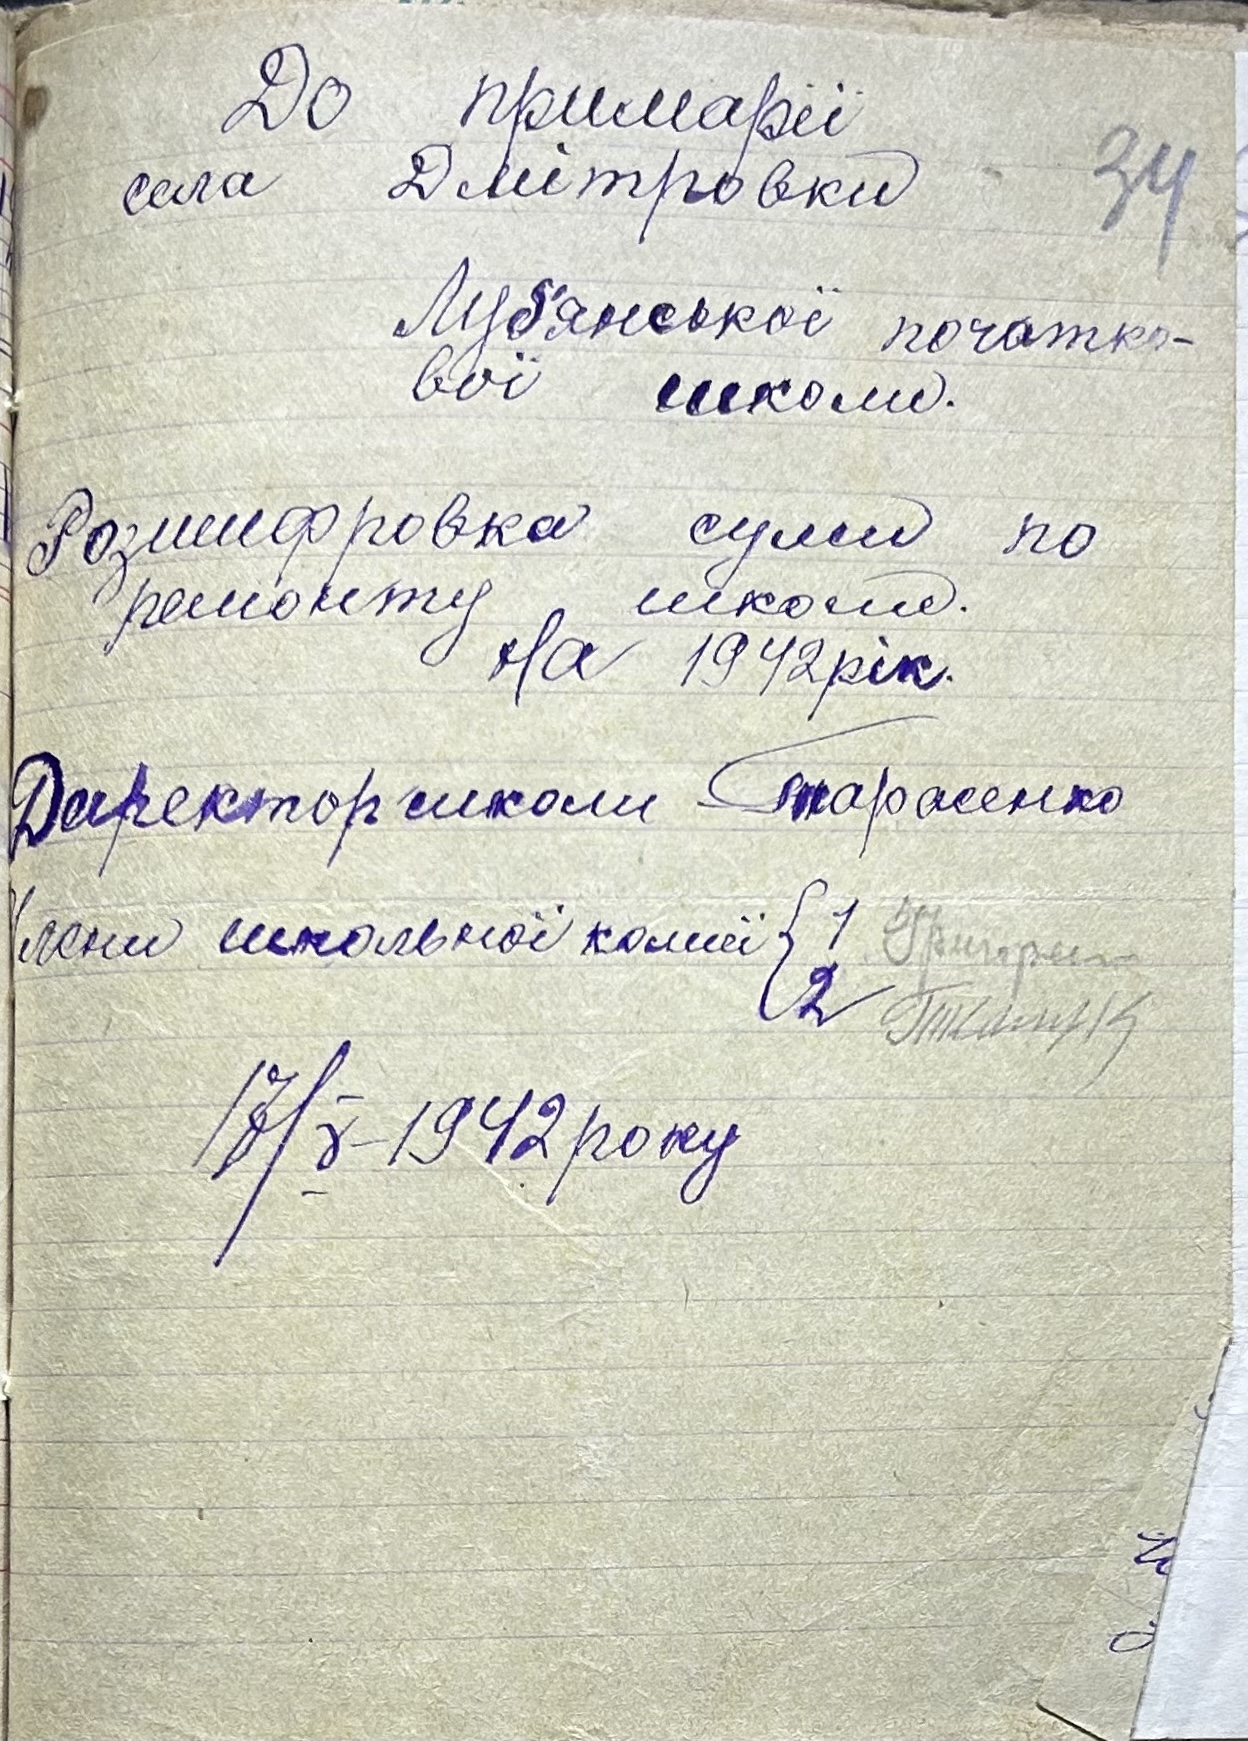 До примарії
села Дмітровки
34
Луб'янської початко-
вої школи.
Розшифровка суми по
ремонту школи.
На 1942 рік.
Директор школи Тарасенко
Члени школьної комиї { 1
2 Ткачук
17/V-1942 року